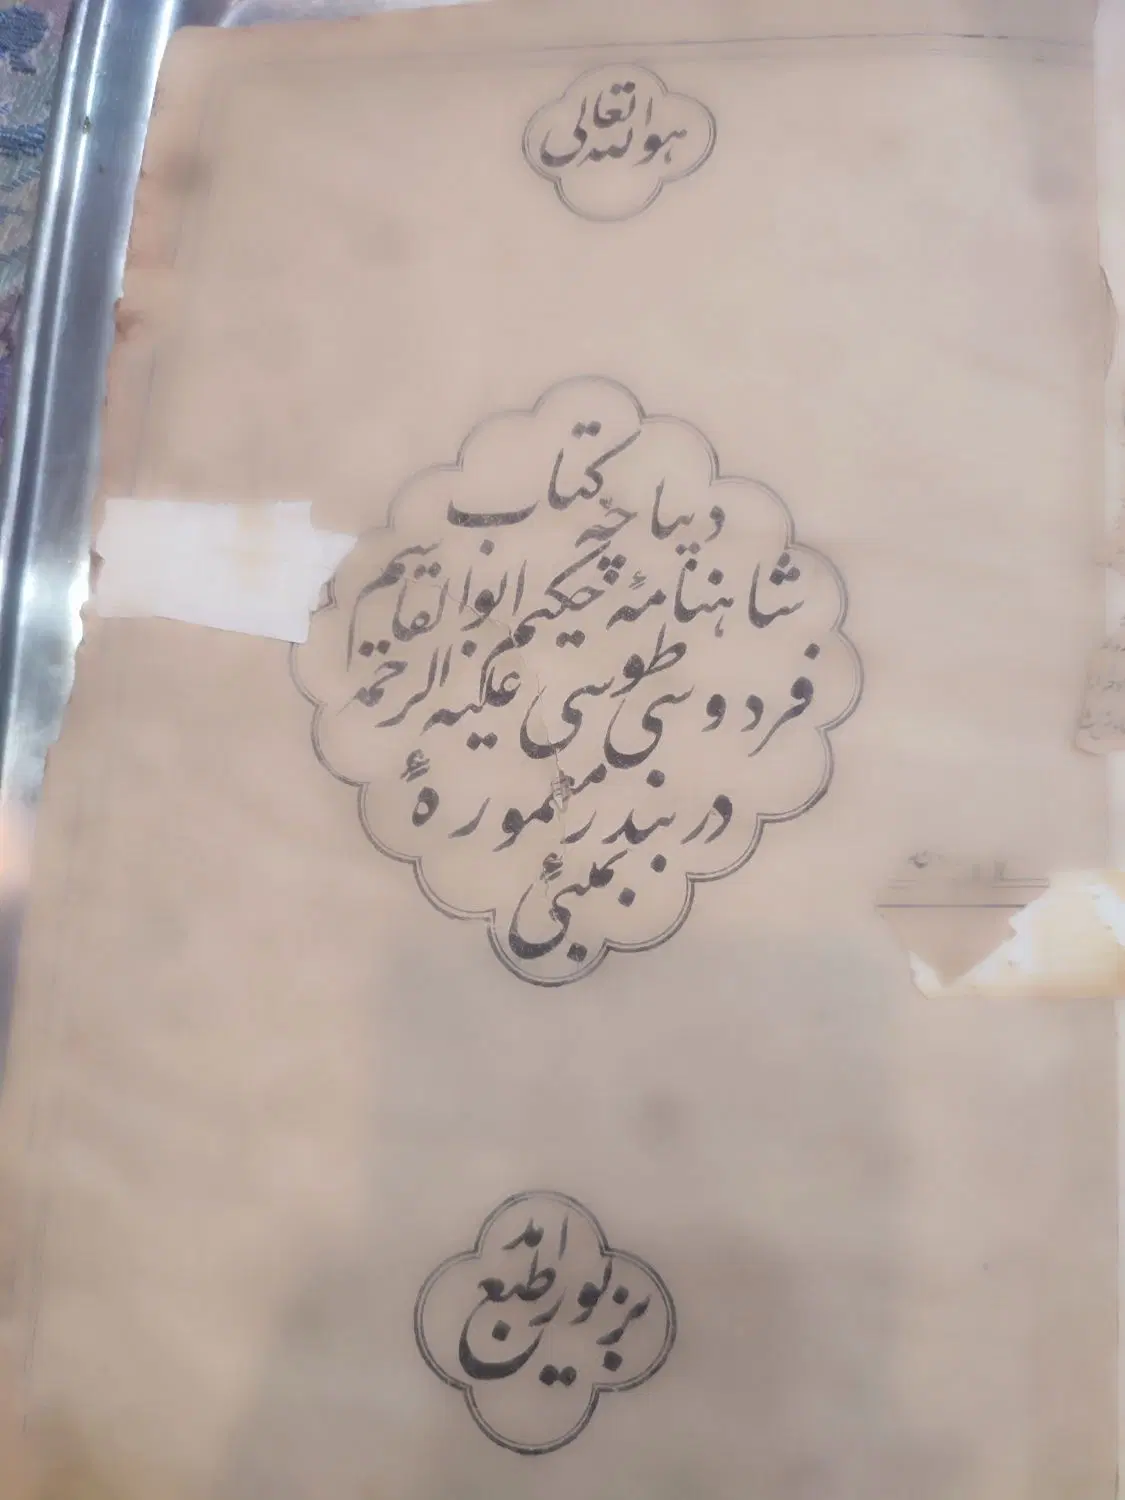 هو الله تعالی
دیباچه کتاب
شاهنامهٔ حکیم ابوالقاسم
فردوسی طوسی علیه الرحمه
در بندر معمورهٔ
بمبئی
بزیور طبع آمد